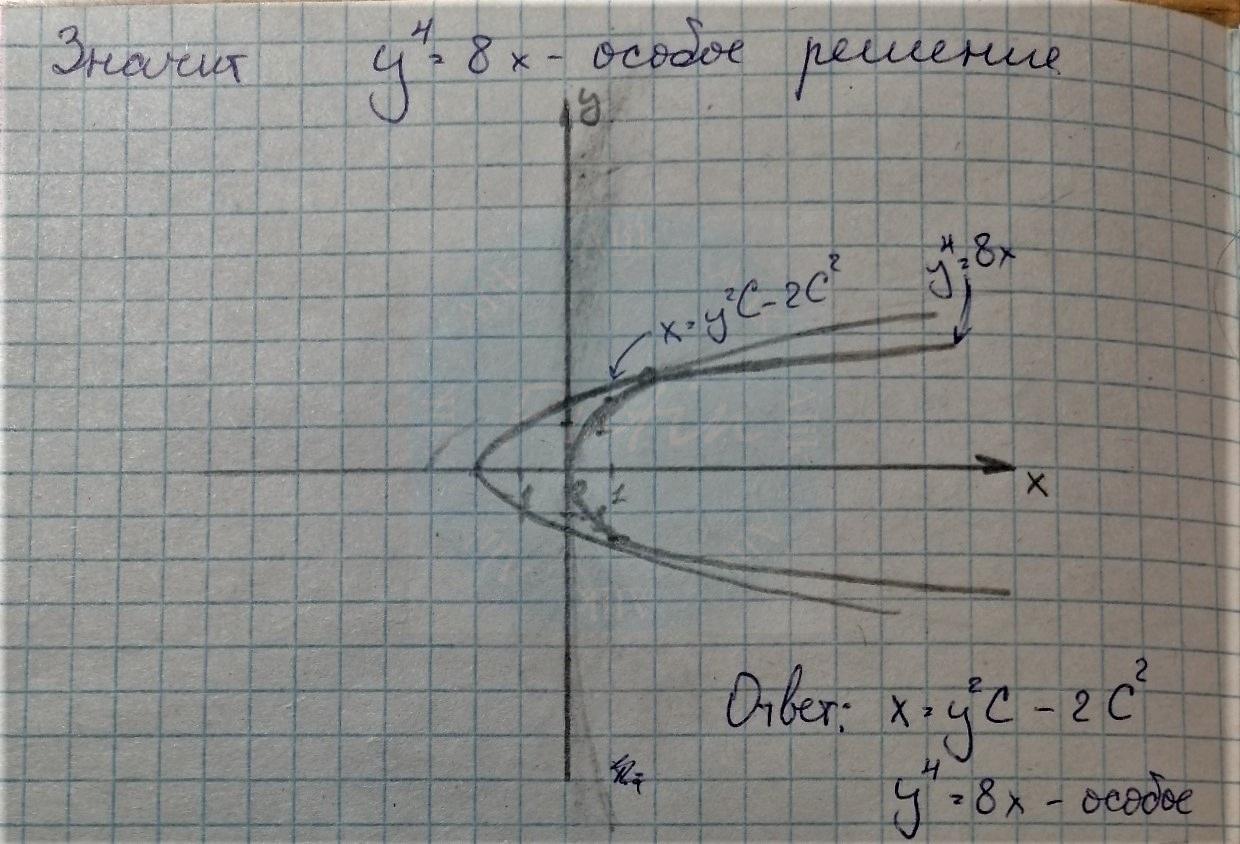 Значит y⁴ = 8x - особое решение
y
y⁴ = 8x
x = y²C - 2C²
1
x
Ответ: x = y²C - 2C²
y⁴ = 8x - особое